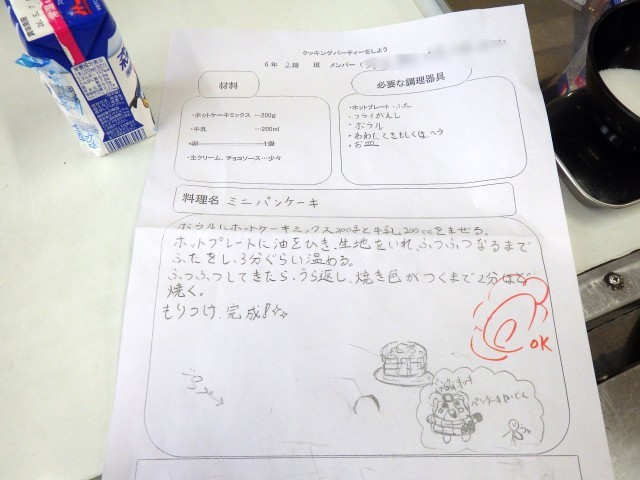 クッキングパーティーをしよう
6年 2組 班 メンバー(
材料
必要な調理器具
・ホットケーキミックス …200g
・牛乳 …200ml
・卵 …1個
・生クリーム、チョコソース…少々
・ホットプレート・ふた
・フライがえし
・ボウル
・あわたてきもしくはヘラ
・お皿
料理名 ミニパンケーキ
ボウルにホットケーキミックス200gと牛乳200ccをまぜる。
ホットプレートに油をひき、生地をいれ、ふつふつなるまで
ふたをし、3分ぐらい温める。
ふつふつしてきたら、うら返し、焼き色がつくまで2分ほど
焼く。
もりつけ、完成!☆☆
OK